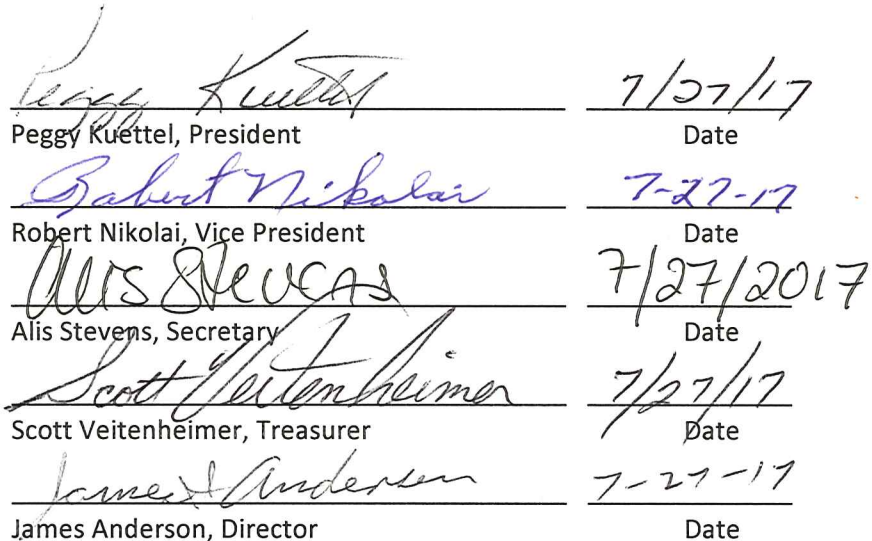 Peggy Kuettel 7/27/17
Peggy Kuettel, President Date
Robert Nikolai 7-27-17
Robert Nikolai, Vice President Date
Alis Stevens 7/27/2017
Alis Stevens, Secretary Date
Scott Veitenheimer 7/27/17
Scott Veitenheimer, Treasurer Date
James Anderson 7-27-17
James Anderson, Director Date